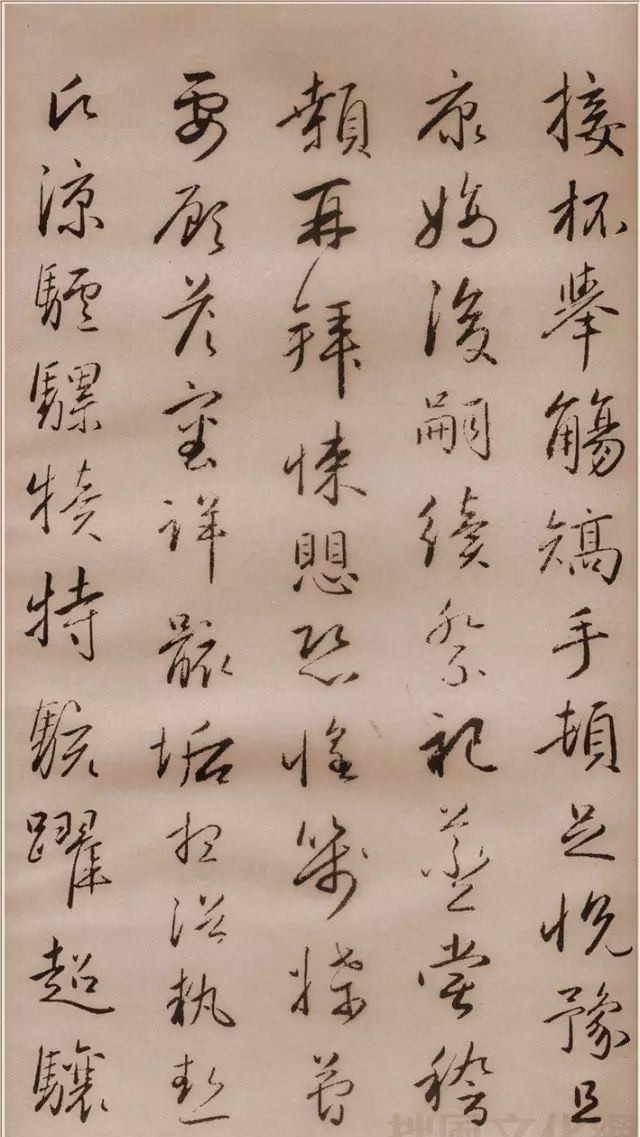 接杯舉觴矯手頓足悅豫且
康嫡後嗣續祭祀蒸嘗稽
顙再拜悚愳恐惶箋牒簡
要顧荅審詳骸垢想浴執熱
願涼驢騾犢特駭躍超驤